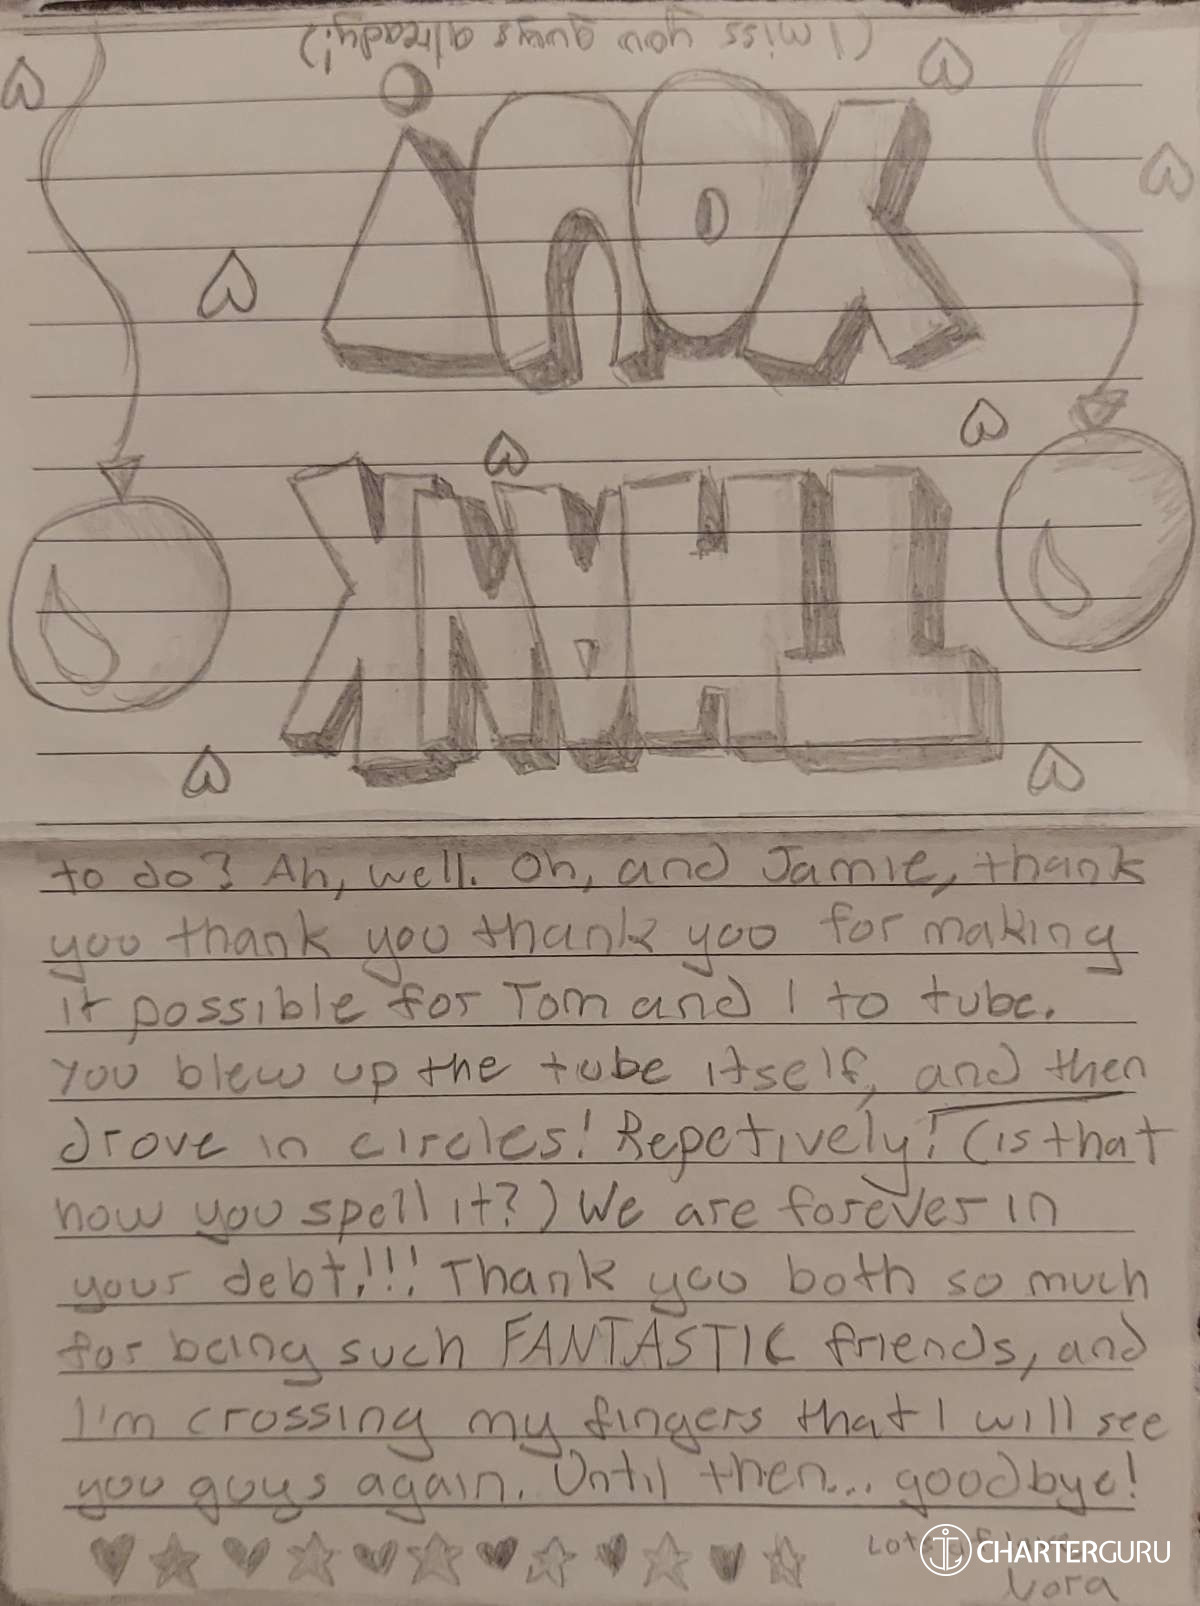 THANK
YOU!
(I miss you guys already!)
to do? Ah, well. Oh, and Jamie, thank
you thank you thank you for making
it possible for Tom and I to tube.
You blew up the tube itself, and then
drove in circles! Repetively! (is that
how you spell it?) We are forever in
your debt!!! Thank you both so much
for being such FANTASTIC friends, and
I'm crossing my fingers that I will see
you guys again. Until then... goodbye!
Lots of love
Nora
CHARTERGURU